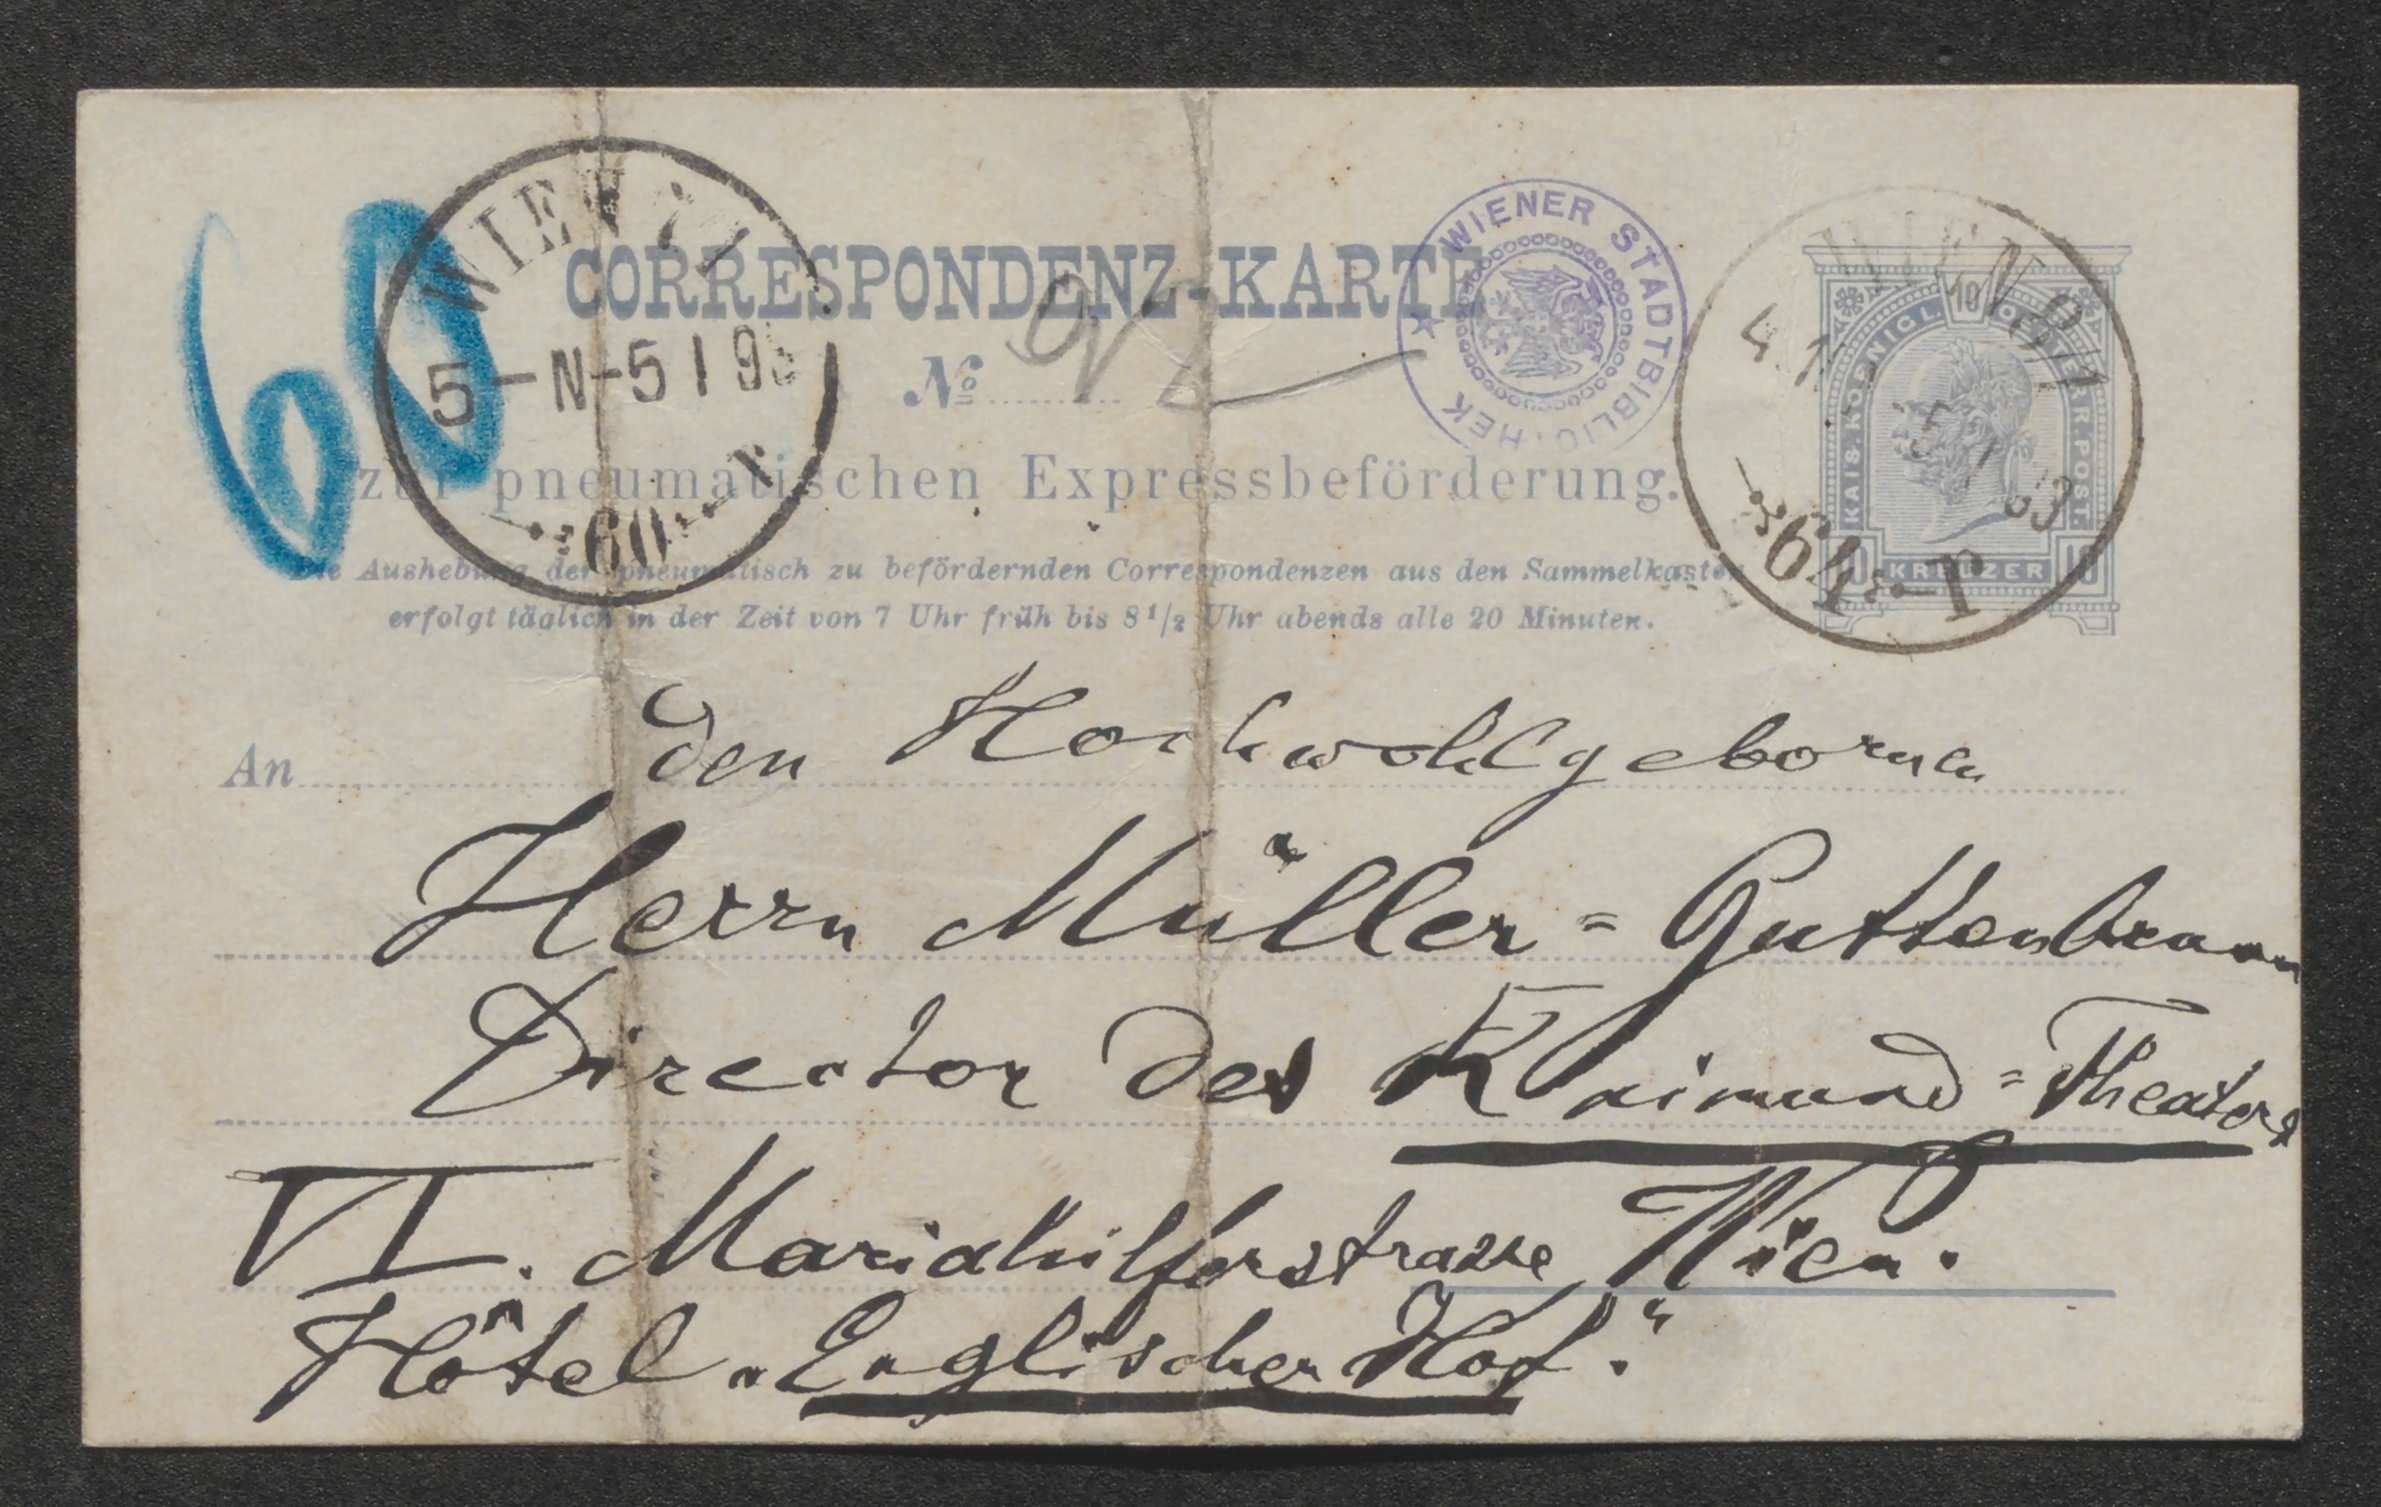 60
WIEN
5-N-5 I 93
60
CORRESPONDENZ-KARTE
No
WIENER STADTBIBLIOTHEK
WIEN
5 I 93
64
KAIS. KOENIGL. 10 OESTERR. POST.
10 KREUZER 10
zur pneumatischen Expressbeförderung.
Die Aushebung der pneumatisch zu befördernden Correspondenzen aus den Sammelkasten
erfolgt täglich in der Zeit von 7 Uhr früh bis 8 1/2 Uhr abends alle 20 Minuten.
An den Hochwohlgebornen
Herrn Müller=Guttenbrunn
Director des Raimund=Theaters
VI. Mariahilferstrasse Wien.
Hôtel „Englischer Hof."